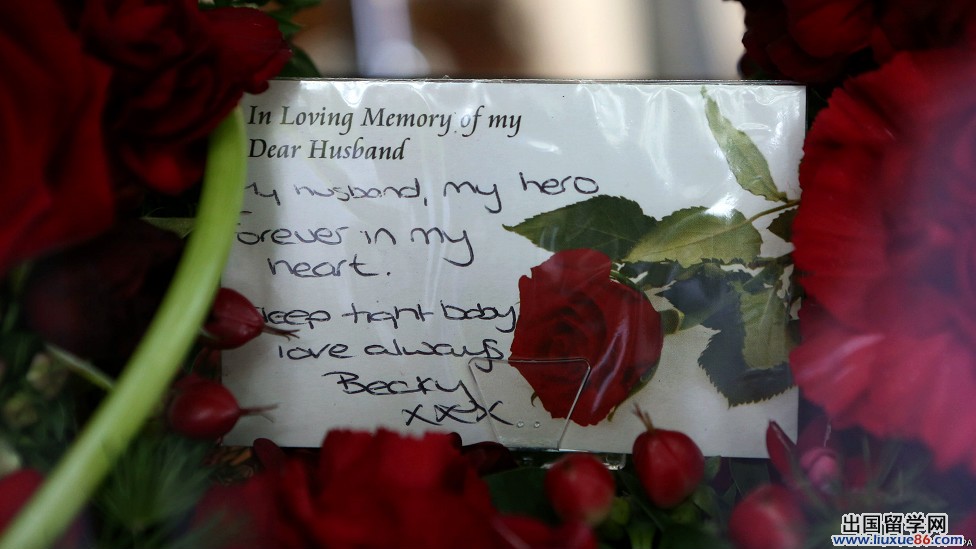 In Loving Memory of my
Dear Husband
My husband, my hero
Forever in my
heart.
Sleep tight baby
love always
Becky
xxxx
出国留学网
www.liuxue86.com
PA